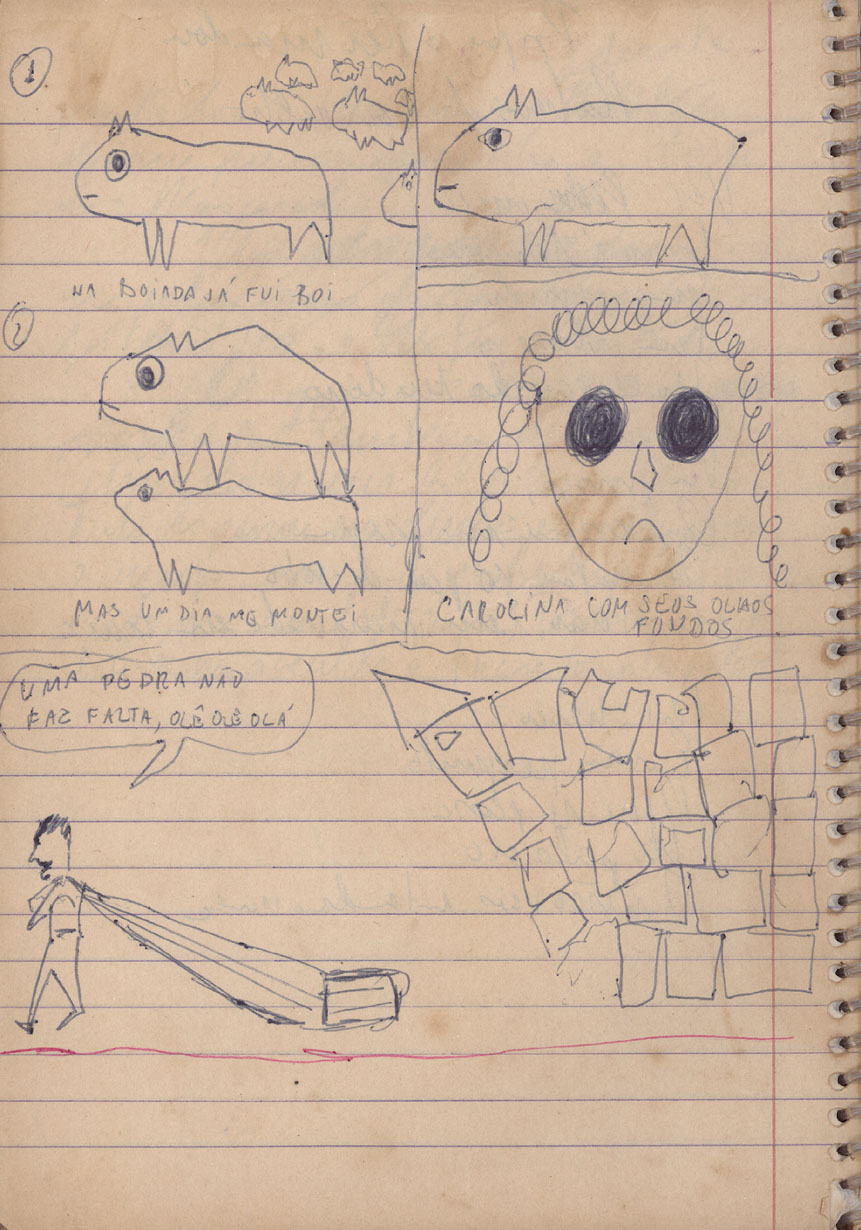 1
NA BOIADA JÁ FUI BOI
2
MAS UM DIA ME MONTEI
CAROLINA COM SEUS OLHOS
FUNDOS
UMA PEDRA NÃO
FAZ FALTA, OLÊ OLÊ OLÁ